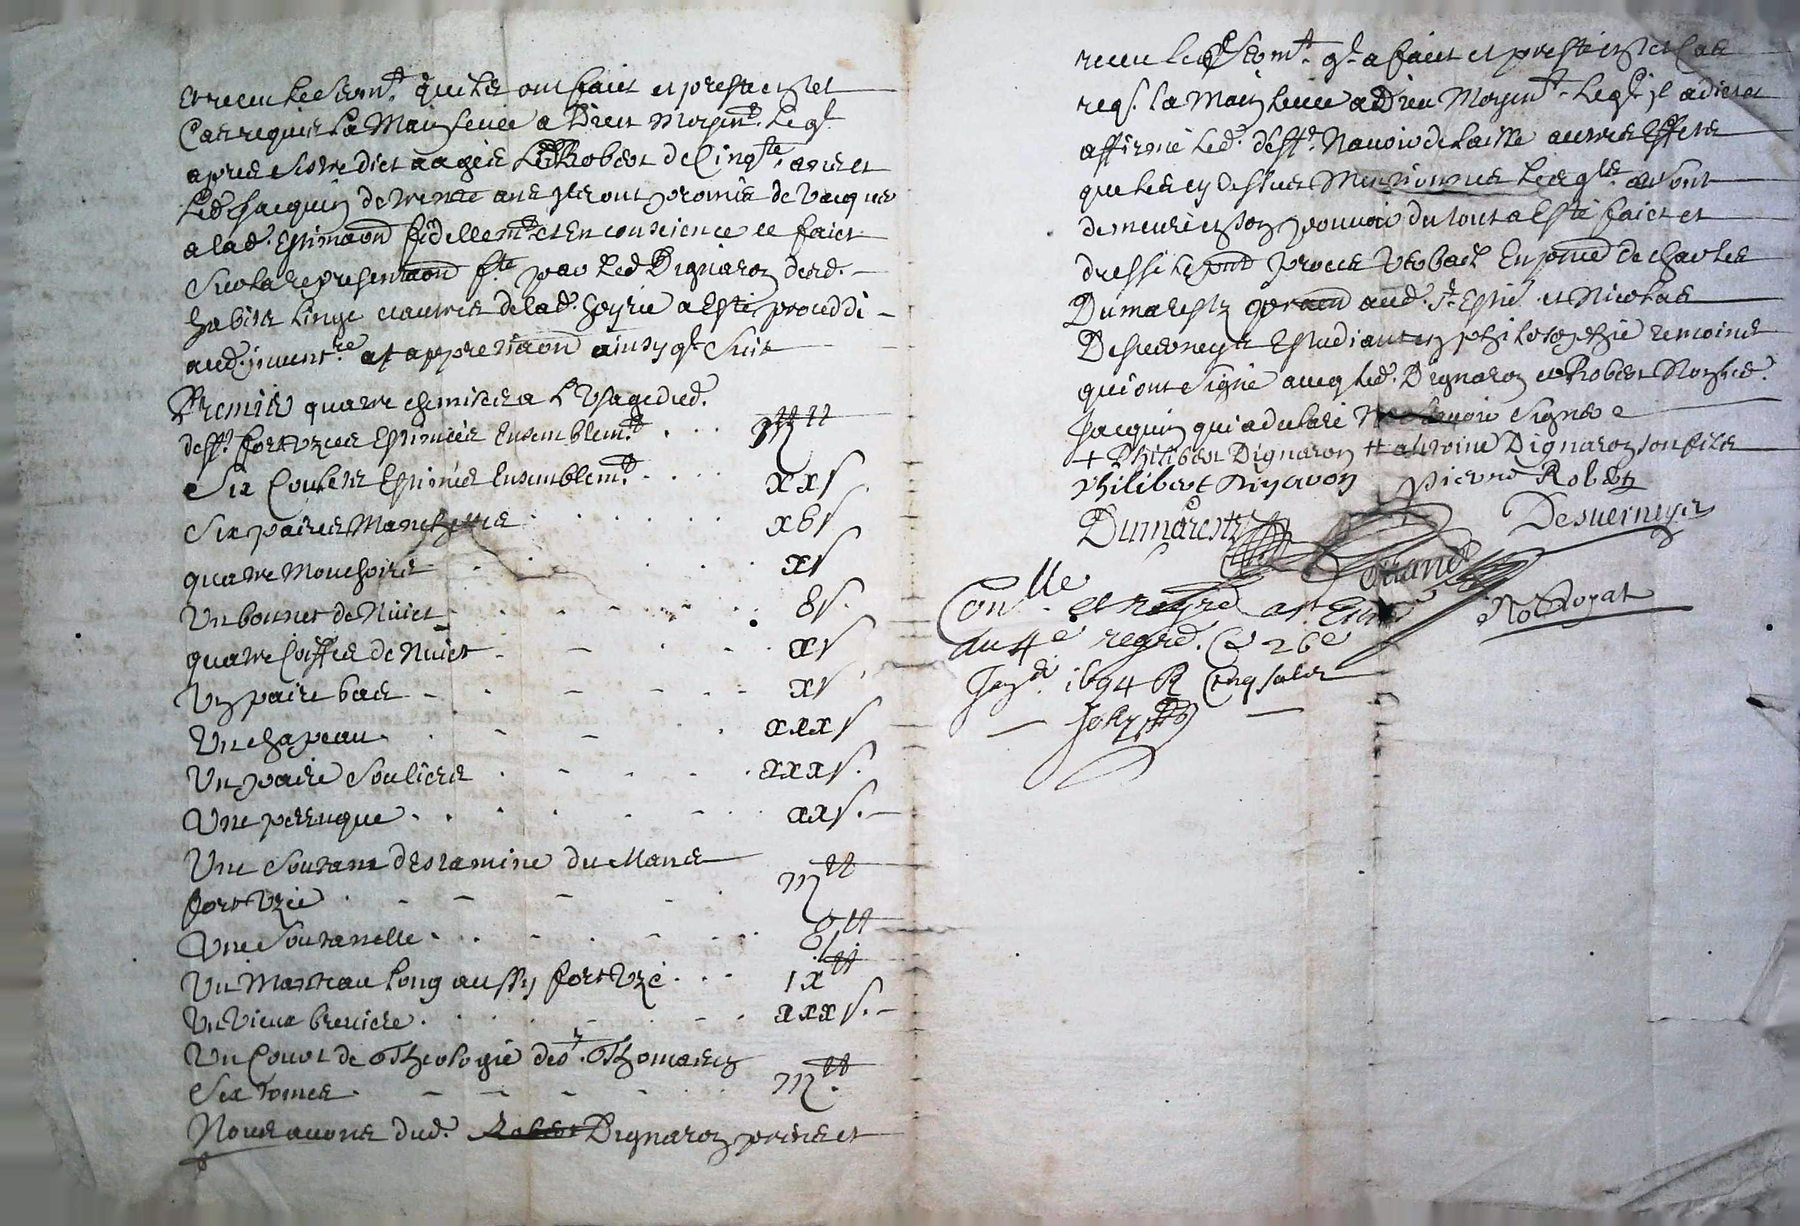 et receu le serm.t qu'ils ont faict et presté en tel
Cas requis la Main levée a Dieu Moyen.t leql
apres s'estre dict aagés led Robert de Cinq.te ans et
led Jacquin de trente ans ils ont promis de vacquer
a lad. Estimaon fidellem.t et En conscience ce faict
Sur la representaon f.te par led Dignaron desd.
habits linge et autres de lad. hoyrie a esté proceddé
aud. invent.re et appretiaon ainsy q.l suit
Premier quatre chemises a L'Usage dud.
deff.t fort uzees Estimées Ensemblem.t . . . iij tt
Six Coulets Estimés Ensemblem.t . . . xx s
Six paires Manchettes . . . xv s
quatre Mouchoirs . . . xv s
Un bonnet de Nuict . . . v s.
quatre Coiffes de Nuict . . . xv s
Un paire bas . . . xv s
Un chapeau . . . xxx s
Un paire Souliers . . . xxx s.
Une perruque . . . xx s.
Une Soutane d'estamine du Mans
fort Uzée . . . iij tt
Une Soutanelle . . . v tt
Un Manteau long aussy fort Uzé . . . ix tt
Un Vieux breviere . . . xxx s.
Un Cours de Theologie de S.t Thomas en
Six tomes . . . iij tt
Nous avons dud. Robert Dignaron prins et
receu led. Serm.t q.l a faict et presté en tel Cas
req.s la Main levée a Dieu Moyen.t leq.l il a dict et
affirmé led. deff.t N'avoir delaissé autres Effets
que les cy dessus Mentionnés lesq.ls sont
demeurés en son pouvoir du tout a Esté faict et
dressé le pnt proces Verbail En pnce de Charles
Dumarestz aud. S.t Est.e et Nicolas
Desverneys Estudiant en philosophie temoins
qui ont signé avecq led. Dignaron et Robert Non led.
Jacquin qui a declaré Ne Scavoir Signer
+ Philibert Dignaron tt antoine Dignaron son fils
Philibert Dignaron Pierre Robert
Dumarestz Desverneys
Grand
No.re Royal
Con.lle et regré a S.t Est.e
au 4.e regre. Ce 26e
Janv.r 1694 R Cinq solz